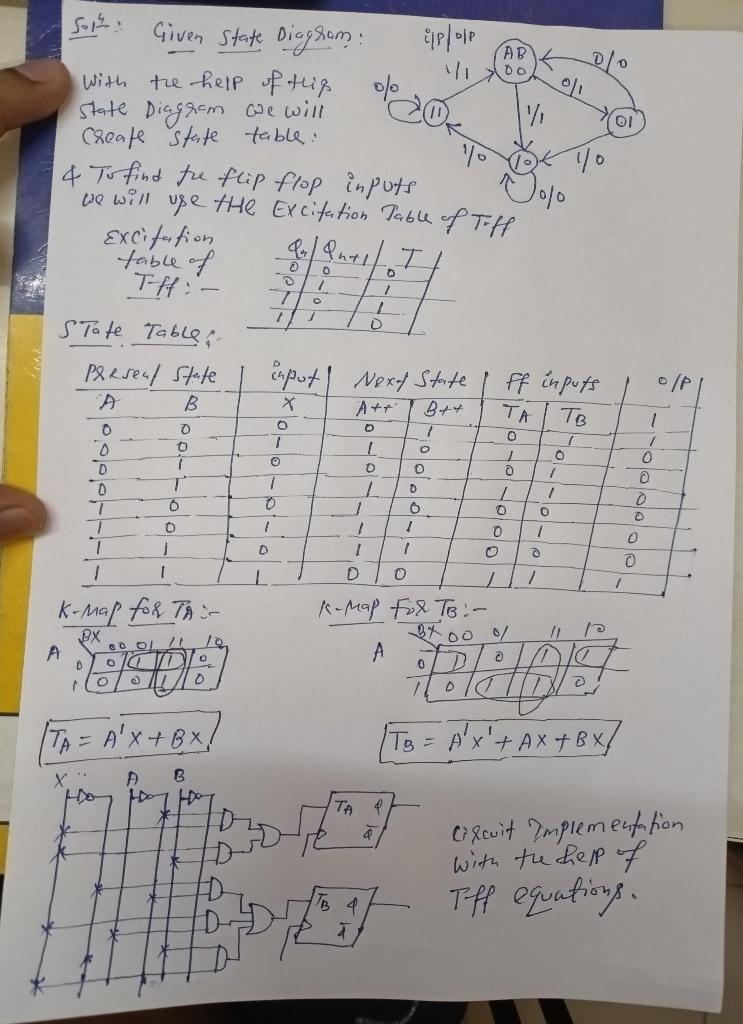 Solⁿ: Given State Diagram:
i/p/o/p
AB
00
0/0
1/1
0/1
0/0
11
1/1
01
1/0
10
1/0
0/0
With the help of this
State Diagram we will
Create state table:
& To find the flip flop inputs
we will use the Excitation Table of T-ff
Excitation
table of
T-ff:-
Qn Qn+1 T
0 0 0
0 1 1
1 0 1
1 1 0
State Table:
Present State input Next State ff inputs o/p
A B X A++ B++ TA TB
0 0 0 0 1 0 1 1
0 0 1 1 0 1 0 1
0 1 0 0 0 0 1 0
0 1 1 1 0 1 1 0
1 0 0 1 0 0 0 0
1 0 1 1 1 0 1 0
1 1 0 1 1 0 0 0
1 1 1 0 0 1 1 1
K-Map for TA:- K-Map For TB:-
BX 00 01 11 10
A 0 0 1 1 0
1 0 0 1 0
BX 00 01 11 10
A 0 1 0 1 1
1 0 1 1 0
TA = A'X + BX TB = A'X' + AX + BX
X A B
TA Q
Q̅
TB Q
Q̅
Circuit Implementation
with the help of
T-ff equations.